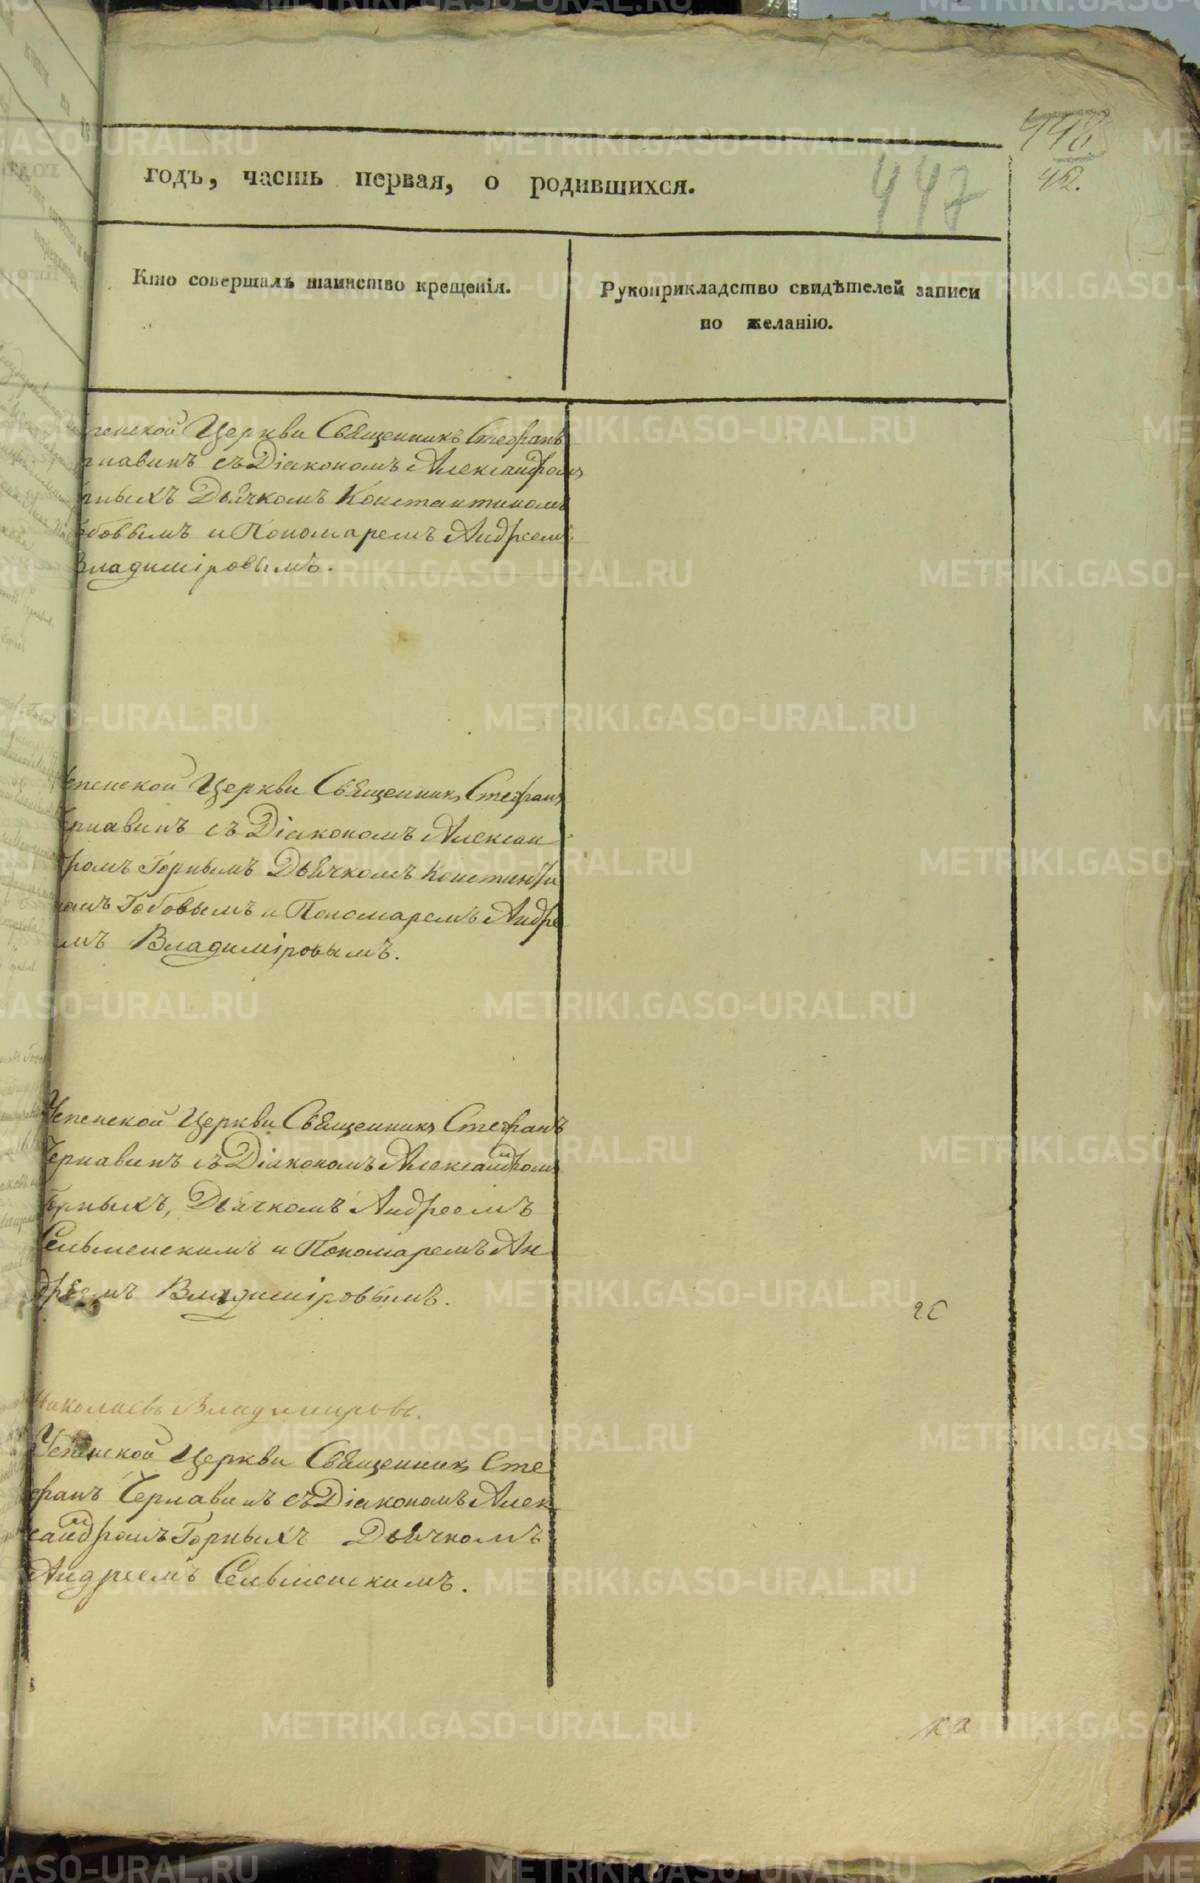 годъ, часть первая, о родившихся.
447
42.
Кто совершалъ таинство крещенія.
Рукоприкладство свидѣтелей записи
по желанію.
Церкви Священникъ Стефанъ
съ Діакономъ Александромъ
Дьячкомъ Константиномъ
и Пономаремъ Андреемъ
Владиміровымъ.
Успенской Церкви Священникъ Стефанъ
Чернавинъ съ Діакономъ Алексан
дромъ Горнымъ Дьячкомъ Константи
номъ Гобовымъ и Пономаремъ Андре
емъ Владиміровымъ.
Успенской Церкви Священникъ Стефанъ
Чернавинъ съ Діакономъ Александромъ
Горныхъ, Дьячкомъ Андреемъ
Сельменскимъ и Пономаремъ Ан
дреемъ Владиміровымъ.
Николаевъ Владимировъ.
Успенской Церкви Священникъ Сте
фанъ Чернавинъ съ Діакономъ Алек
сандромъ Горныхъ Дьячкомъ
Андреемъ Сельменскимъ.
METRIKI.GASO-URAL.RU